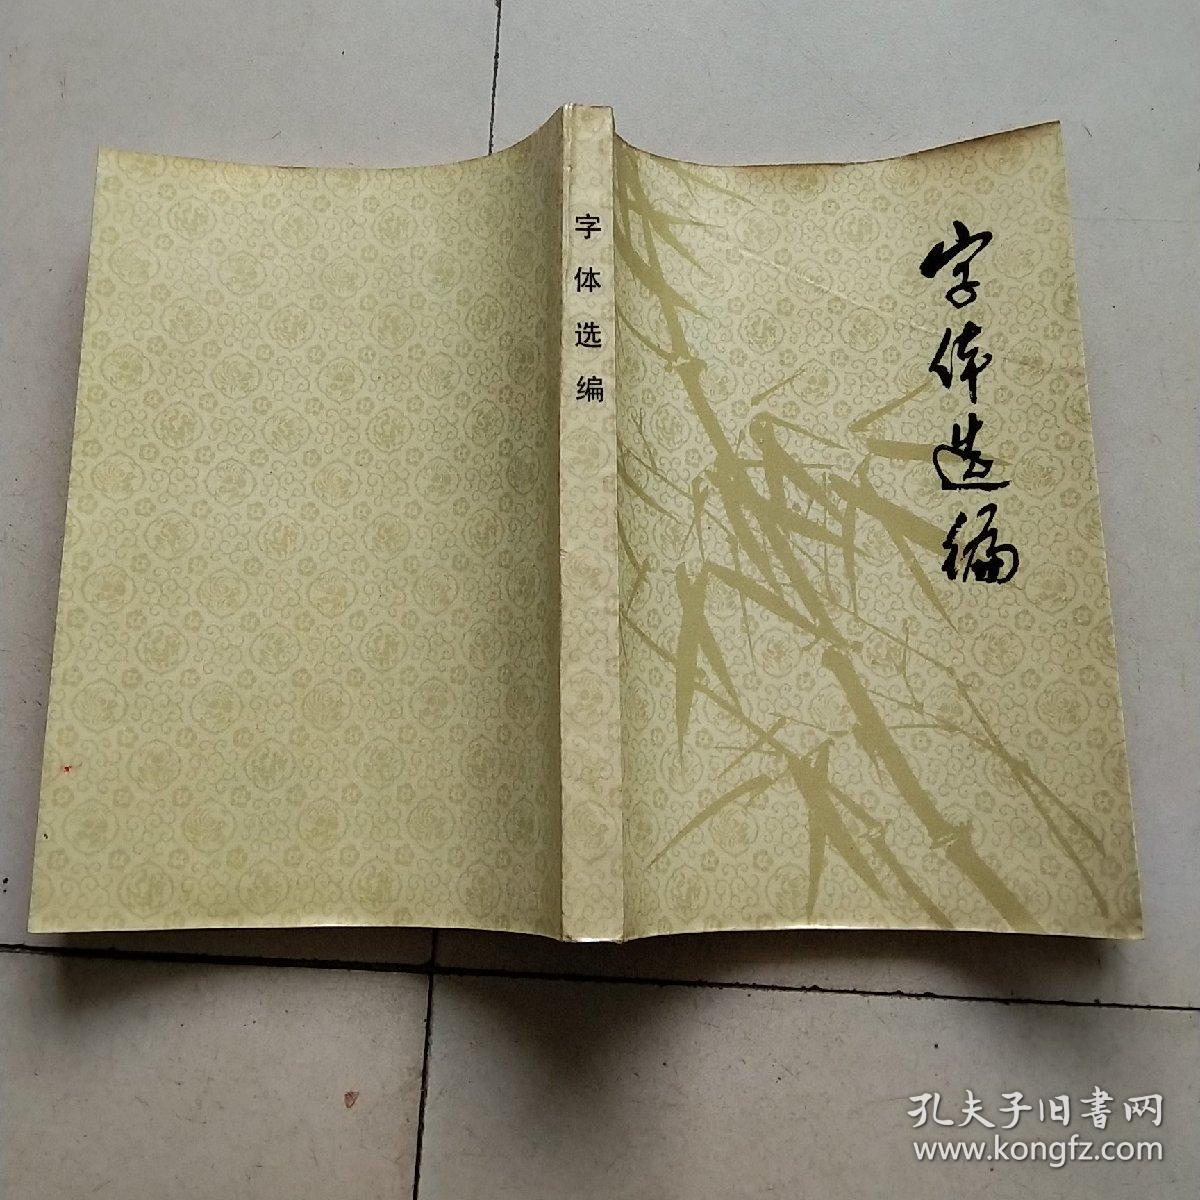 字体选编
字体选编
孔夫子旧書网
www.kongfz.com